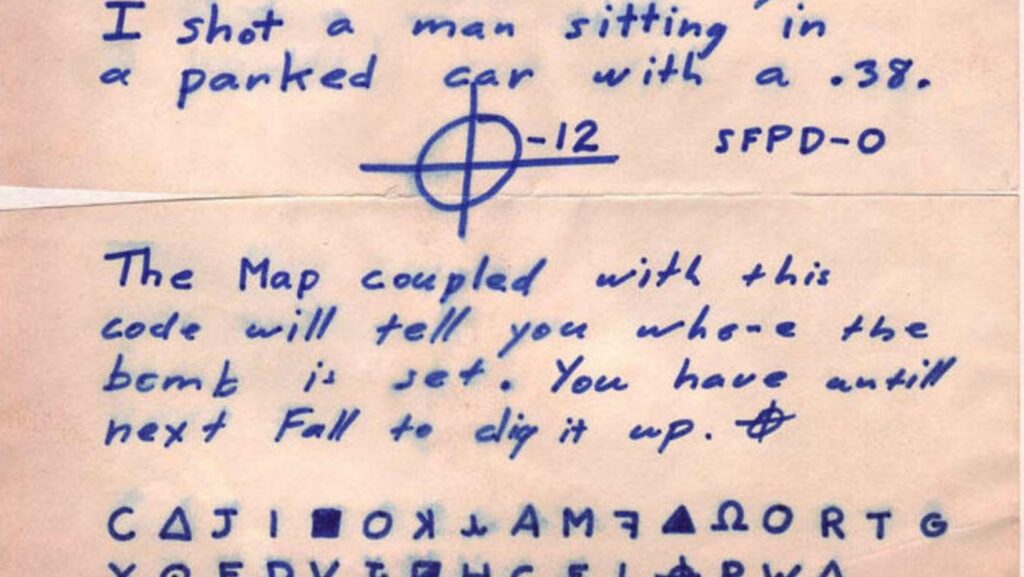 I shot a man sitting in
a parked car with a .38.
-12 SFPD-0
The Map coupled with this
code will tell you where the
bomb is set. You have untill
next Fall to dig it up. ⌖
C Δ J I ■ O ꓘ ⅄ A M ꟻ ▲ Ω O R T G